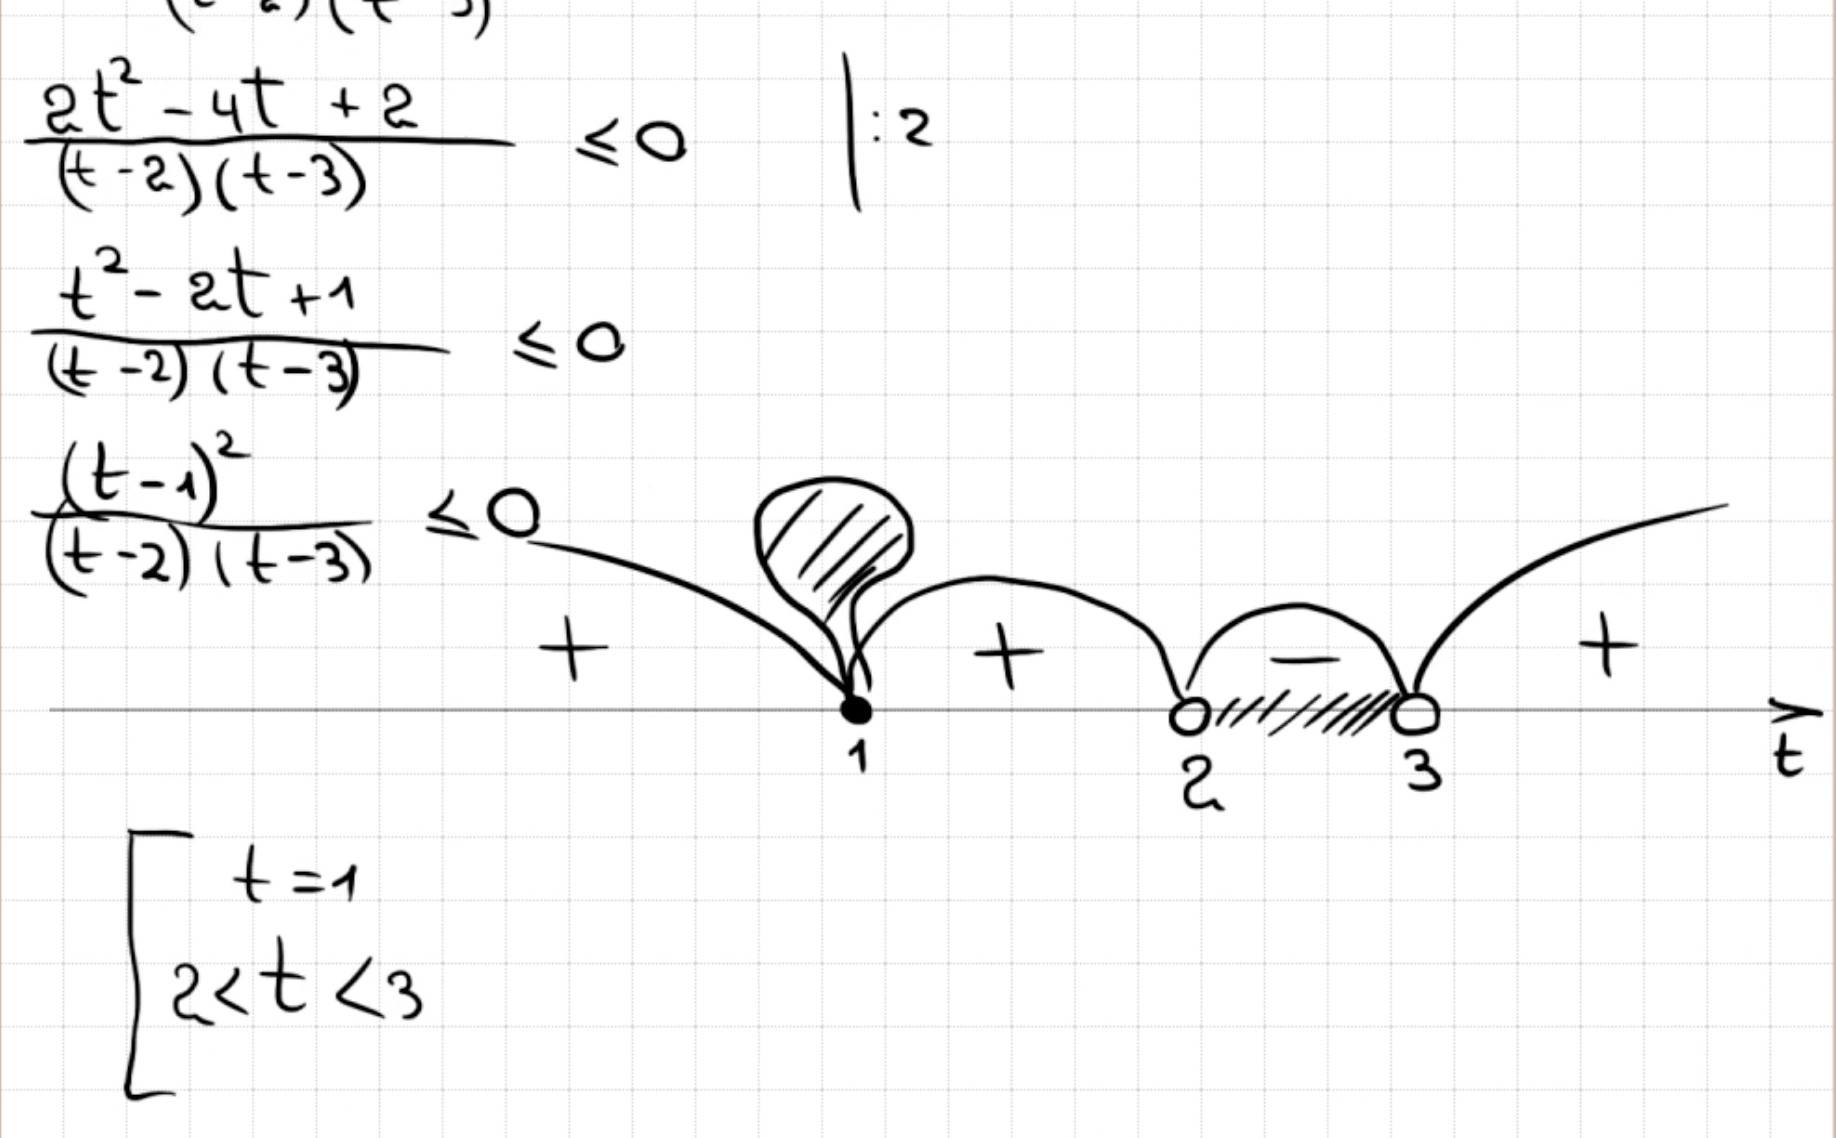 (t-2)(t-3)
2t² - 4t + 2
(t-2)(t-3)
≤ 0 | : 2
t² - 2t + 1
(t-2)(t-3)
≤ 0
(t-1)²
(t-2)(t-3)
≤ 0
+ + - +
1 2 3 t
t = 1
2 < t < 3